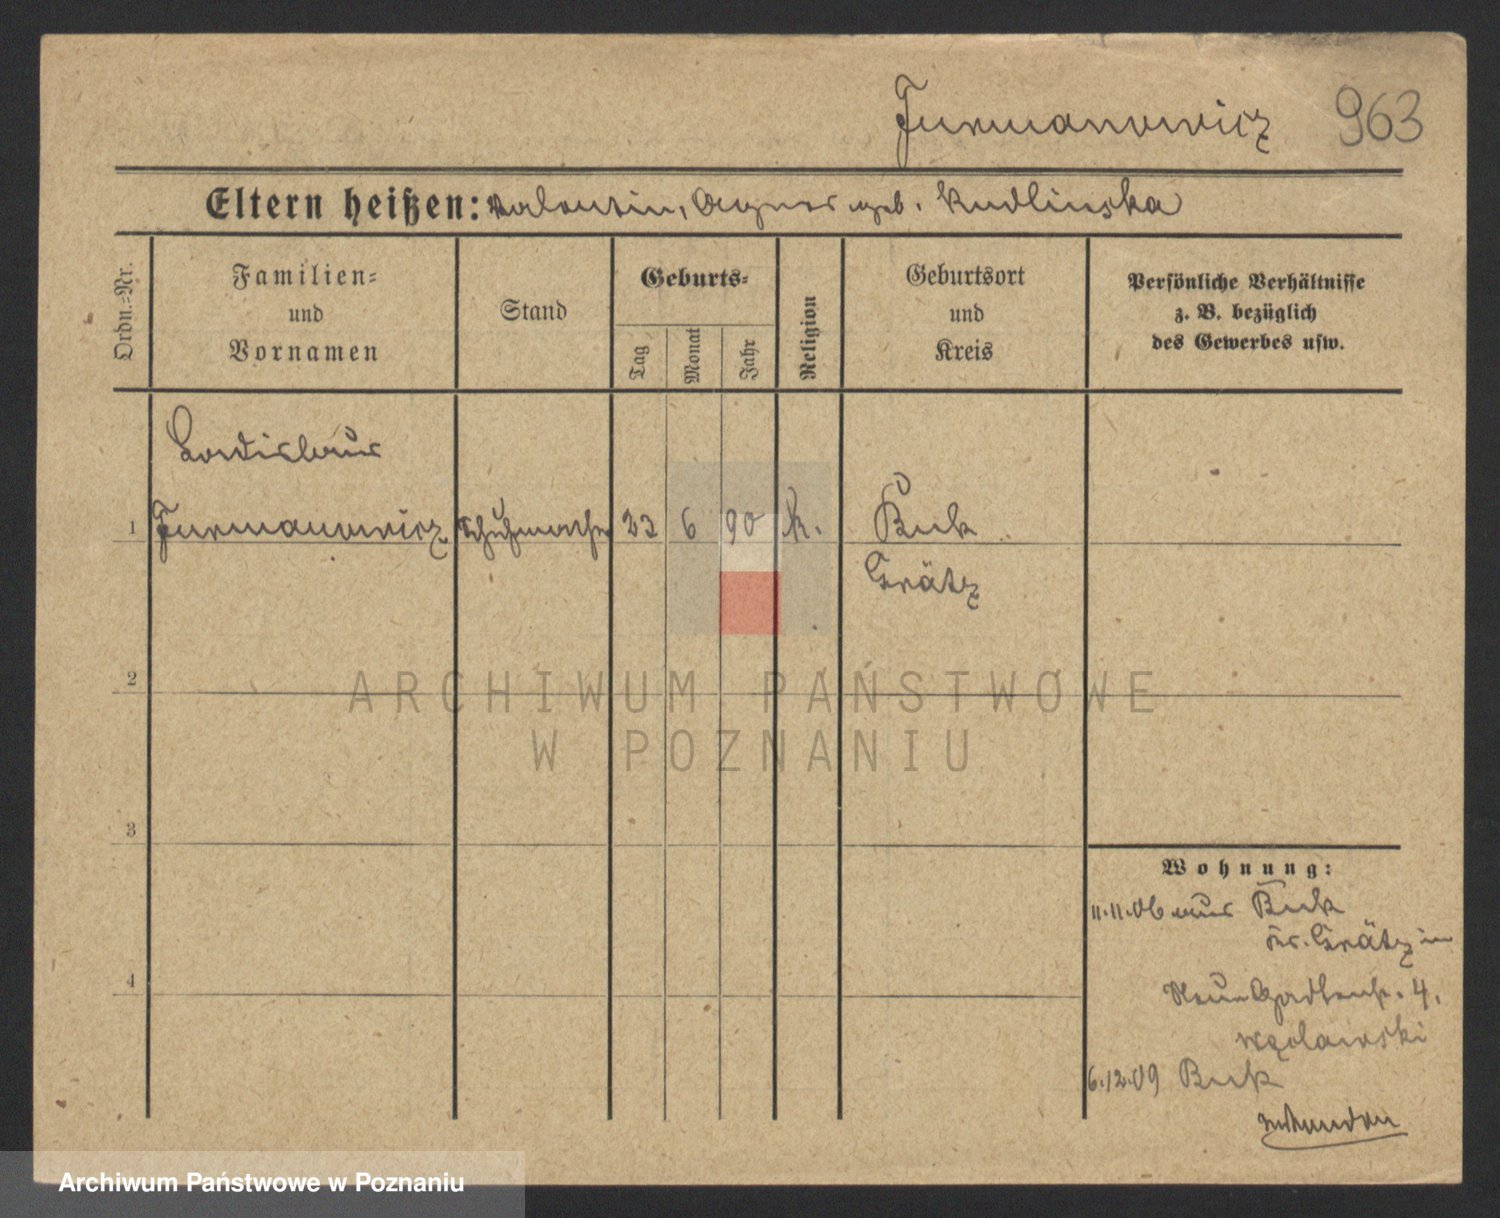 Furmanowicz 963
Eltern heißen: Valentin, Agnes geb. Kudlinska
Ordn.-Nr.
Familien-
und
Vornamen
Stand
Geburts-
Tag
Monat
Jahr
Religion
Geburtsort
und
Kreis
Persönliche Verhältnisse
z. B. bezüglich
des Gewerbes usw.
Ladislaus
1 Furmanowicz Schuhmacher 23 6 90 k. Buk
Grätz
2
ARCHIWUM PAŃSTWOWE
W POZNANIU
3
Wohnung:
11.11.06 aus Buk
Kr. Grätz in
Neue 4.
6.12.09 Buk
Archiwum Państwowe w Poznaniu